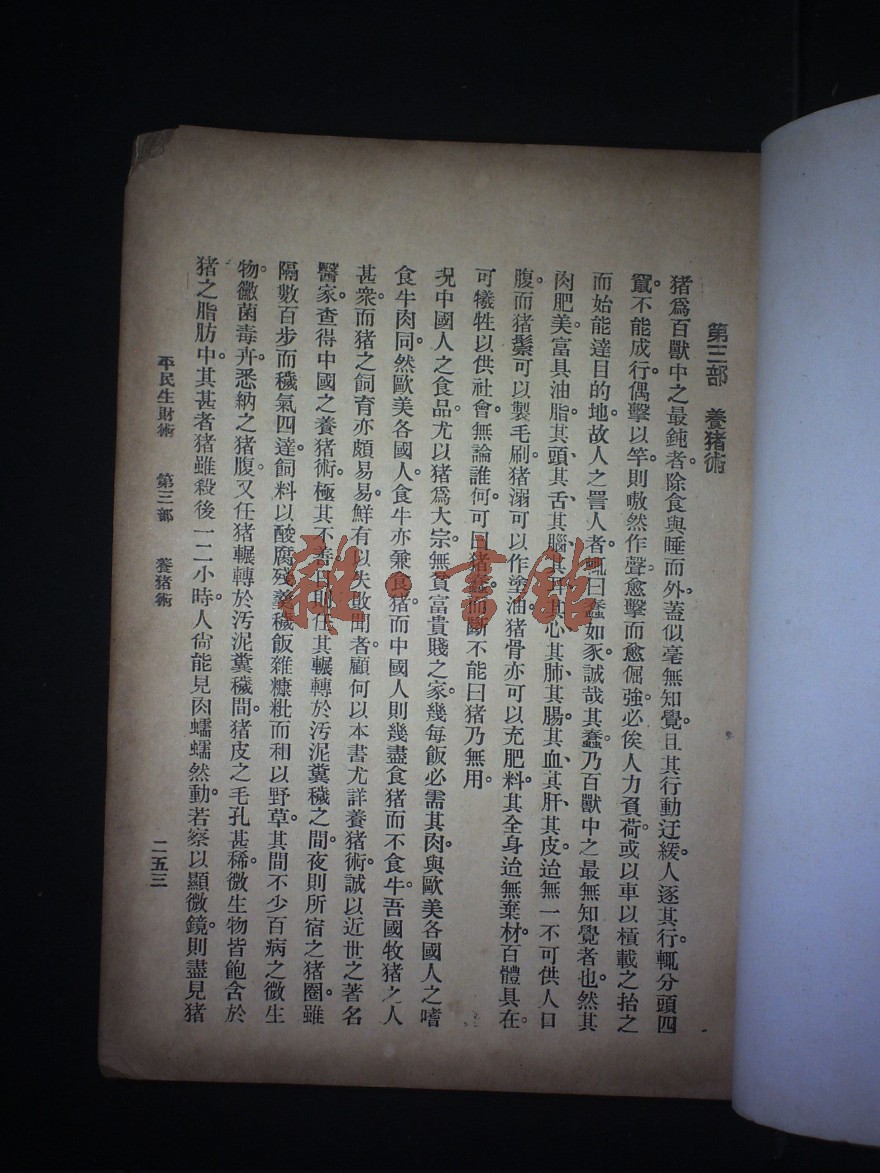 第三部 養猪術
猪爲百獸中之最鈍者。除食與睡而外。蓋似毫無知覺。且其行動迂緩。人逐其行。輒分頭四
竄。不能成行。偶擊以竿。則嗷然作聲。愈擊而愈倔強。必俟人力負荷。或以車以槓載之抬之
而始能達目的地。故人之詈人者。輒曰蠢如豕。誠哉其蠢。乃百獸中之最無知覺者也。然其
肉肥美。富具油脂。其頭、其舌、其腦、其心、其肺、其腸。其血、其肝、其皮。迨無一不可供人口
腹。而猪鬃可以製毛刷。猪溺可以作塗油。猪骨亦可以充肥料。其全身迨無棄材。百體具在。
可犧牲以供社會。無論誰何。可曰猪蠢。而斷不能曰猪乃無用。
况中國人之食品。尤以猪爲大宗。無貧富貴賤之家。幾每飯必需其肉。與歐美各國人之嗜
食牛肉同。然歐美各國人。食牛亦兼食猪。而中國人則幾盡食猪而不食牛。吾國牧猪之人
甚衆。而猪之飼育亦頗易易。鮮有以失敗聞者。顧何以本書尤詳養猪術。誠以近世之著名
醫家。查得中國之養猪術。極其不善。日則任其輾轉於汚泥糞穢之間。夜則所宿之猪圈。雖
隔數百步而穢氣四達。飼料以酸腐殘羹穢飯雜糠粃而和以野草。其間不少百病之微生
物。黴菌毒卉。悉納之猪腹。又任猪輾轉於汚泥糞穢間。猪皮之毛孔甚稀。微生物皆飽含於
猪之脂肪中。其甚者猪雖殺後一二小時。人尙能見肉蠕蠕然動。若察以顯微鏡。則盡見猪
平民生財術 第三部 養猪術 二五三
雜·書館